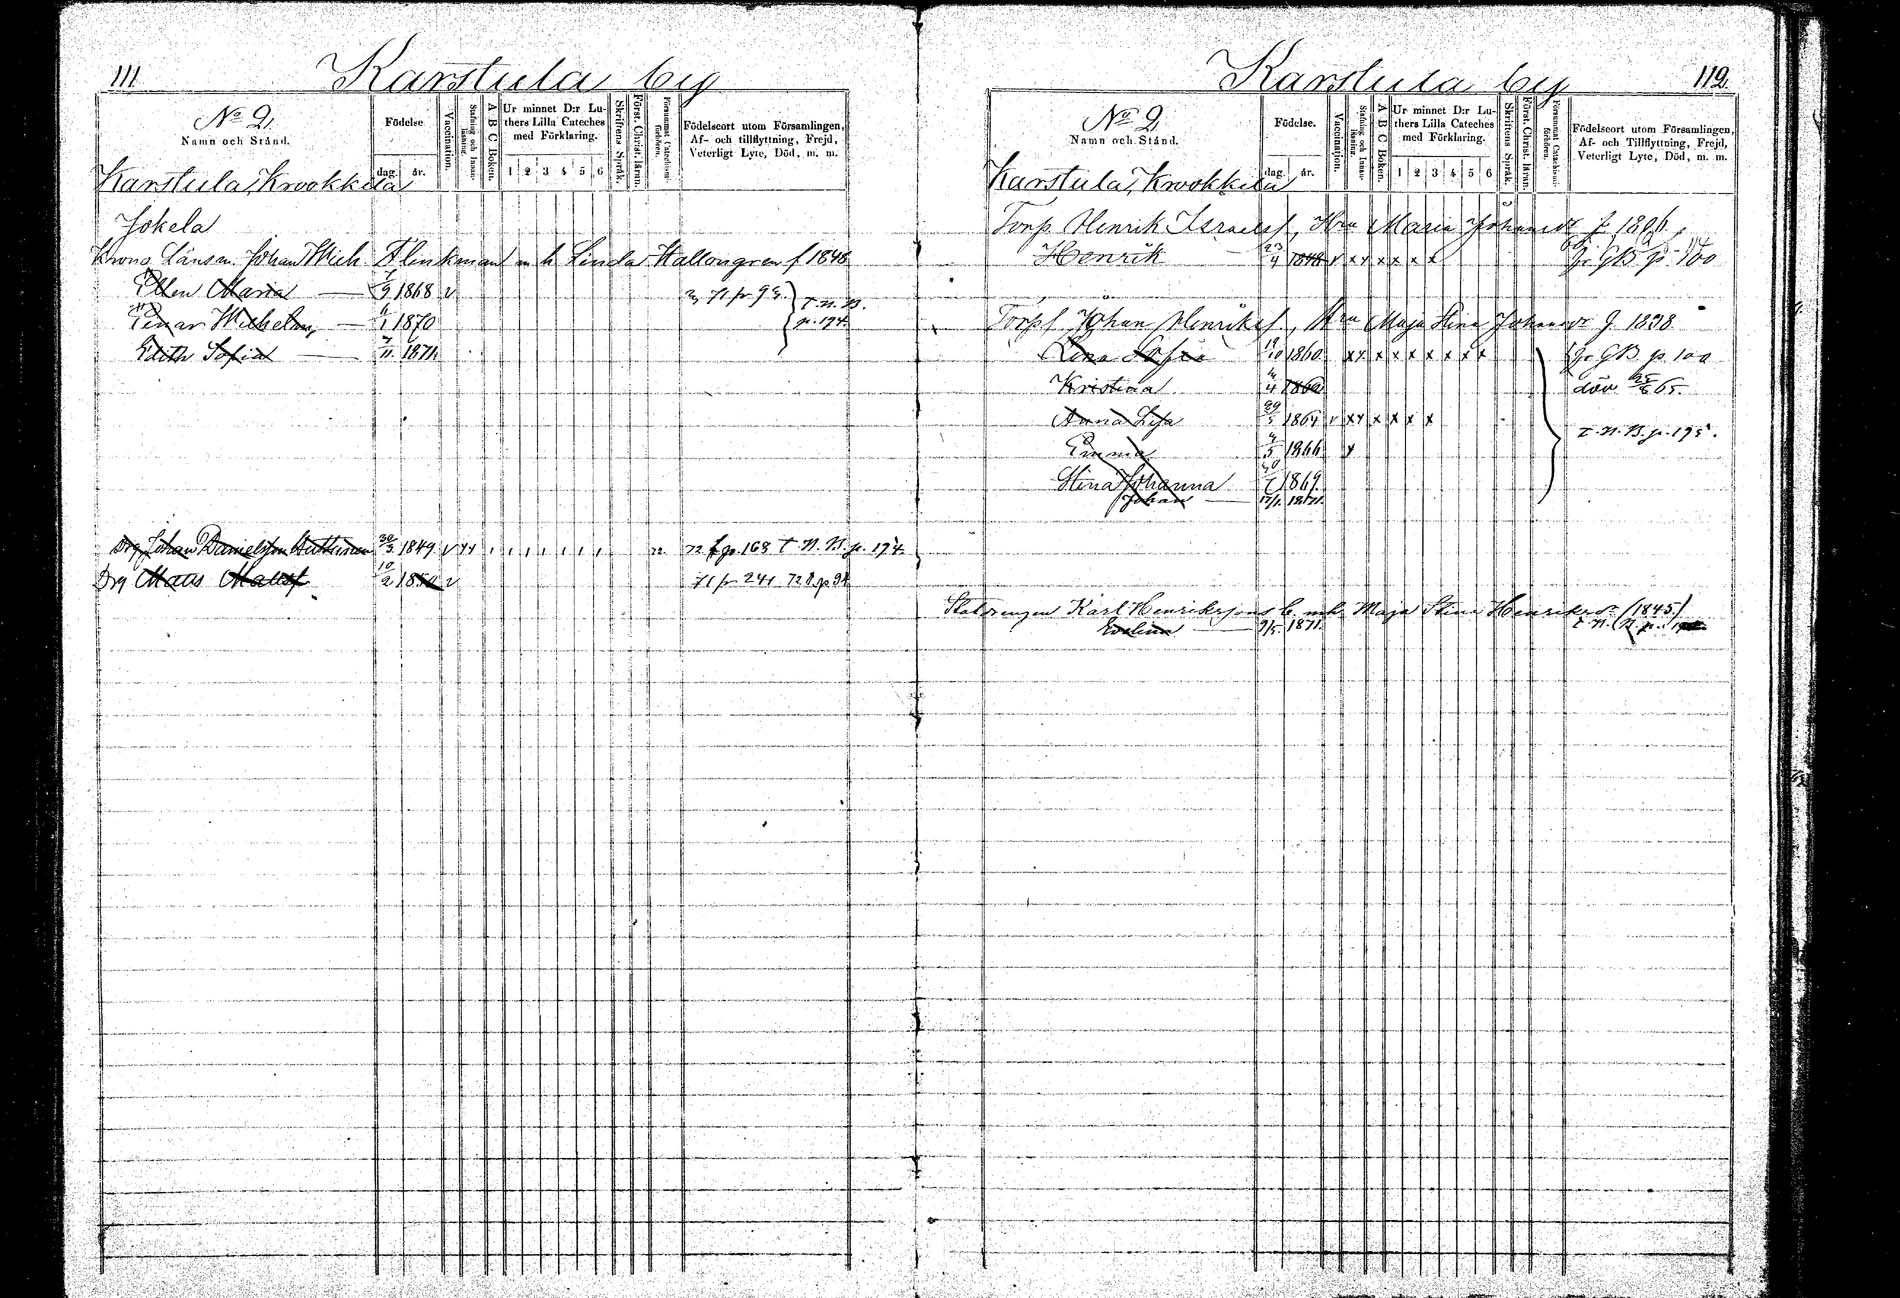 111.
Karstula by
No 2.
Namn och Stånd.
Födelse
dag. år.
Vaccination.
Stafning och Innanläsning.
A B C Boken.
Ur minnet D:r Luthers Lilla Cateches med Förklaring.
1 2 3 4 5 6
Skriftens Språk.
Först. Christ. läran.
Försummat Catechismiförhören.
Födelseort utom Församlingen,
Af- och tillflyttning, Frejd,
Veterligt Lyte, Död, m. m.
Karstula, Krookkila
Jokela
Krono Länsm. Johan Wilh. Flinkman m h Linda Hallongren f. 1848
Ellen Maria — 1868 v 71 fr 93. T. N. B.
Einar Wilhelm — 1870 p. 194.
Edith Sofia — 7/11 1871.
Drg Johan Danielsson Huttunen 30/3 1849 v x x 72 72 fr p. 163 T. N. B. p. 194.
Drg Matts Mattsf 10/2 1850 v 71 fr 241 72 p 94
112.
Karstula by
No 2
Namn och Stånd.
Födelse.
dag. år.
Vaccination.
Stafning och Innanläsning.
A B C Boken.
Ur minnet D:r Luthers Lilla Cateches med Förklaring.
1 2 3 4 5 6
Skriftens Språk.
Först. Christ. läran.
Försummat Catechismiförhören.
Födelseort utom Församlingen,
Af- och Tillflyttning, Frejd,
Veterligt Lyte, Död, m. m.
Karstula, Krookkila
Torp. Henrik Israelsf, Hru Maria Johansdr f. 1806.
Henrik — 23/4 1848 v x x x x x x fr GB p. 100
Torpf Johan Henriksf, Hru Maja Stina Johansdr f. 1838
Lena Sofia 19/10 1860 x x x x x x x x x fr GB p. 100
Kristina 4 1862 död 25/6 65.
Anna Lisa 29/5 1864 v x x x x x x T. N. B. p. 195.
Emma 4/5 1866 x
Stina Johanna 1869.
Johan — 17/1. 1871.
Statdrengen Karl Henrikssons b. mh Maja Stina Henriksdr (1845.)
Evelina — 9/5. 1871. T. N. B. p.